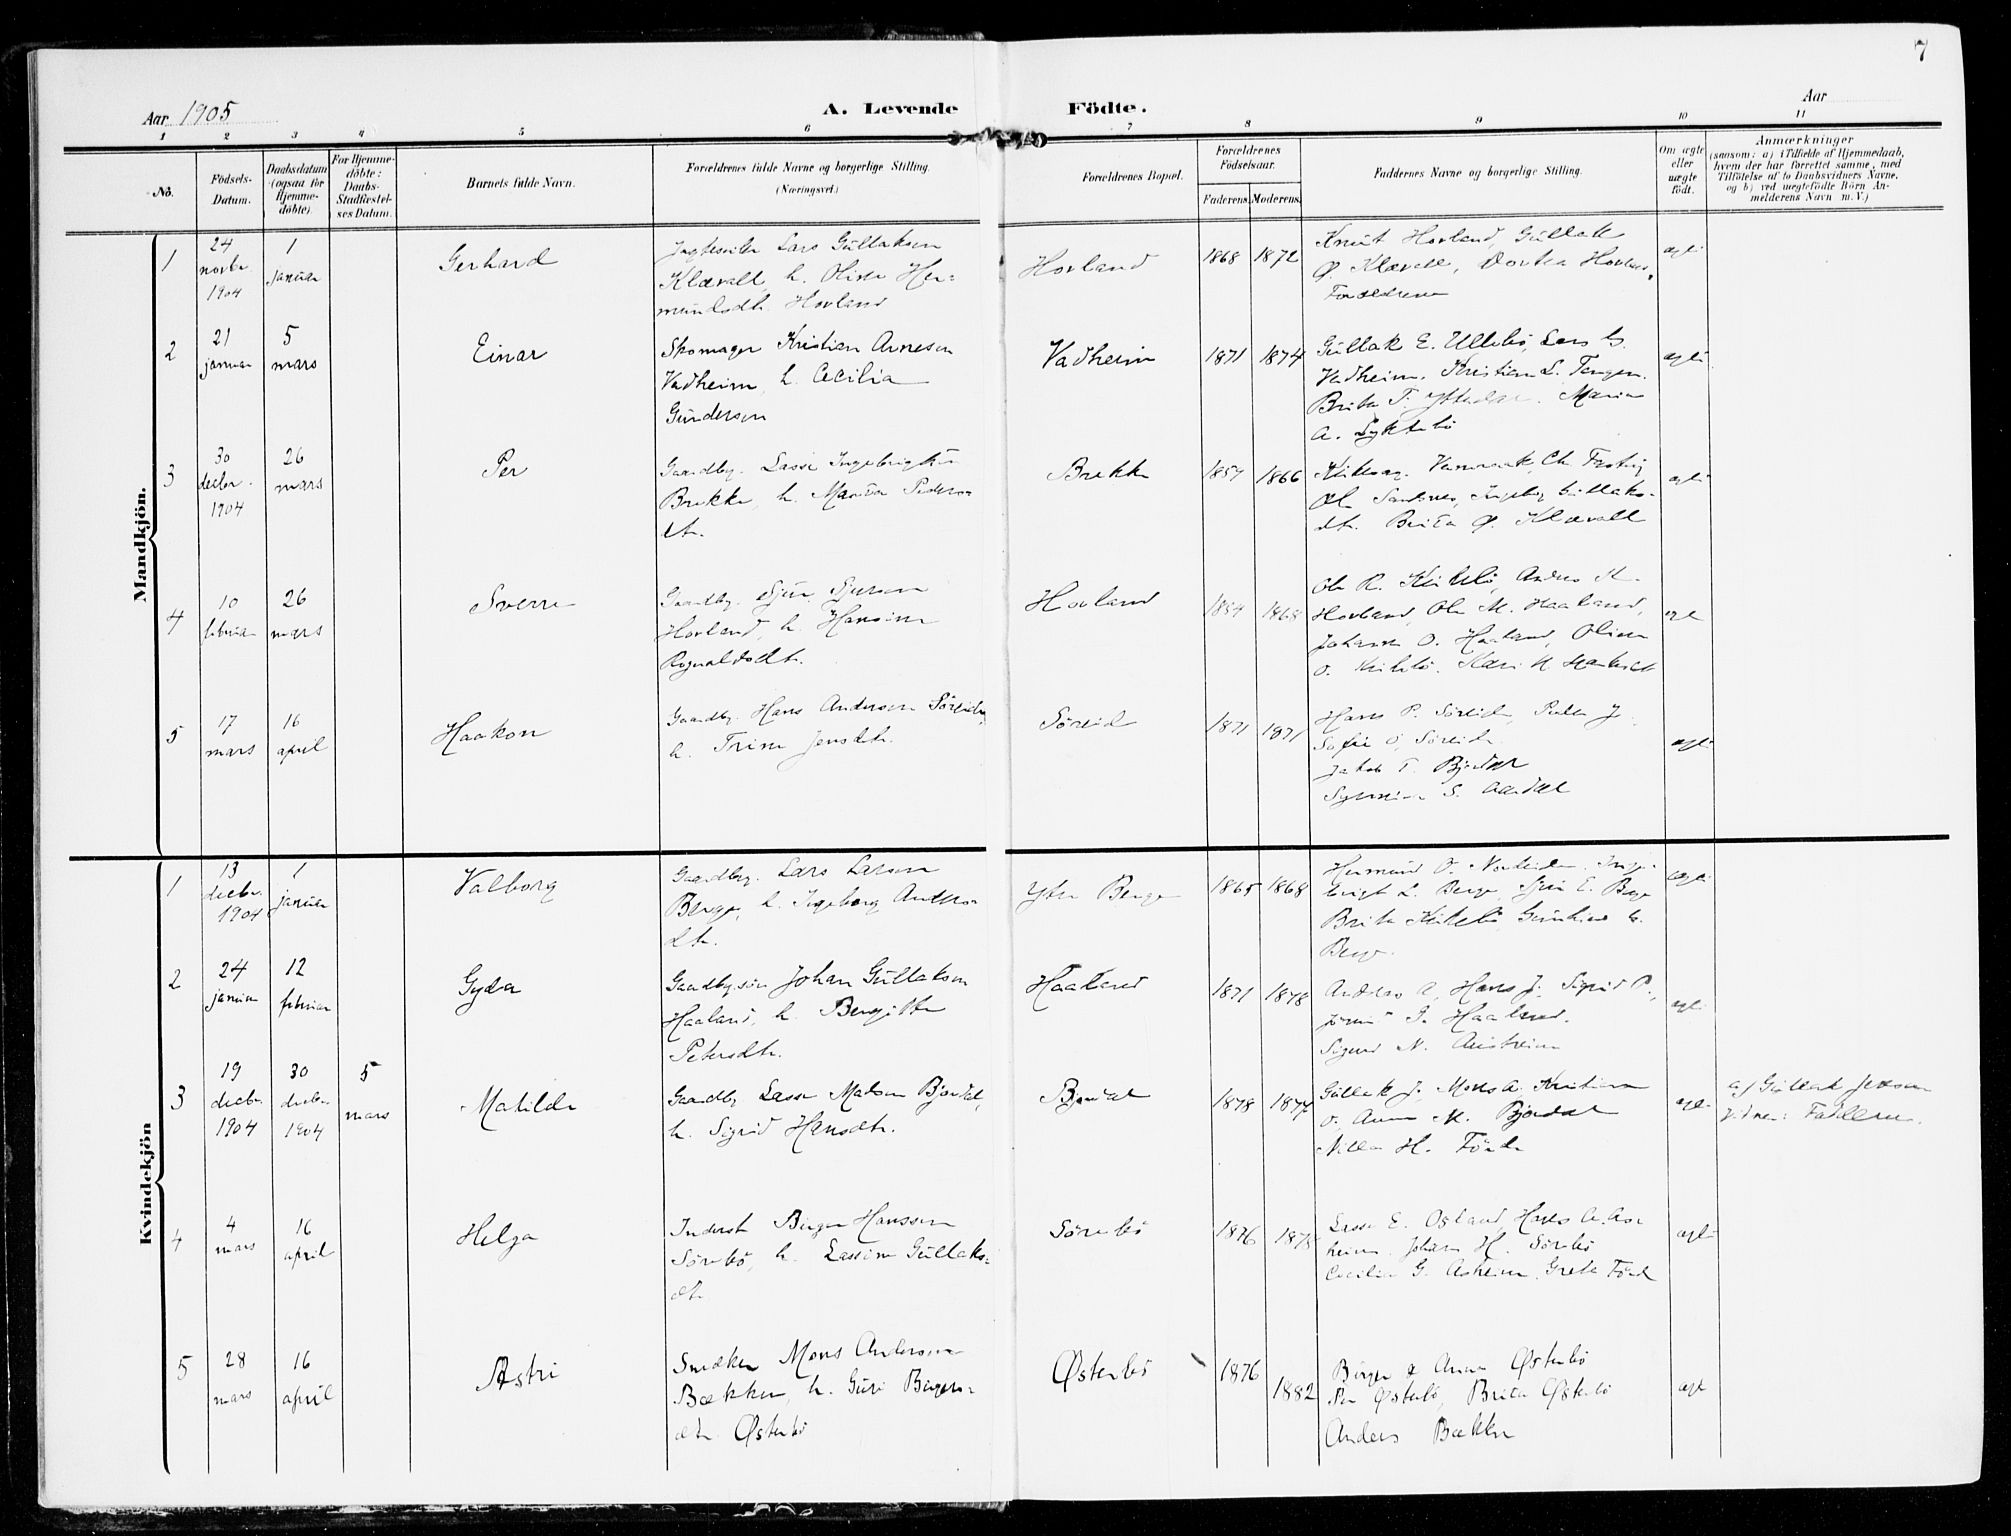 7
Aar 1905
A. Levende
Födte.
Aar
1 2 3 4 5 6 7 8 9 10 11
No.
Födsels-Datum.
Daabsdatum (ogsaa for Hjemmedöbte).
For Hjemmedöbte: Daabs-Stadfæstelses Datum.
Barnets fulde Navn.
Forældrenes fulde Navne og borgerlige Stilling. (Næringsvei.)
Forældrenes Bopæl.
Forældrenes Födselsaar.
Faderens. Moderens.
Faddernes Navne og borgerlige Stilling.
Om ægte eller uægte födt.
Anmærkninger
(saasom: a) i Tilfælde af Hjemmedaab,
hvem der har forrettet samme, med
Tilföielse af to Daabsvidners Navne,
og b) ved uægtefödte Börn An-
melderens Navn m. V.)
Mandkjön.
1
24 novbr. 1904
1 januar
Gerhard
Lars Gullaksen
Klævold, h. Oline Her-
mundsdtr. Hovland
Hovland
1868 1872
Knut Hovland, Gullak
Ø. Klævold, Dortea Hovland,
Forældrene
ægte
2
21 januar
5 mars
Einar
Skomager Kristian Arnesen
Vadheim, h. Cecilia
Gundersen
Vadheim
1871 1874
Gullak E. Ullebö, Lars
Vadheim, Kristian L. Tangen.
Brita T. Ytredal. Marie
A. Lyktebö
ægte
3
30 decbr. 1904
26 mars
Per
Gaardbr. Lasse Ingebrigtsen
Brekke, h. Peders-
dtr.
Brekke
1857 1866
Sandnes, Ingebor Gullaks-
dtr. Brita Ø. Klævold
ægte
4
10 februar
26 mars
Sverre
Gaardbr. Sjur Sjursen
Hovland, h. Hansine
Rognaldsdtr.
Hovland
1854 1868
Ole R. Kirkebö, Anders
Hovland, Ole M. Haaland,
Johanne O. Haaland, Oline
O. Kirkebö. Kari
ægte
5
17 mars
16 april
Haakon
Gaardbr. Hans Andersen Söreide,
h. Trine Jensdtr.
Söreid
1871 1871
Hans P. Söreide,
Sofie O. Söreide.
Jakob T. Bjordal
S. Aardal
ægte
Kvindekjön
1
13 decbr. 1904
1 januar
Valborg
Gaardbr. Lars Larsen
Berge, h. Ingeborg Anders-
dtr.
Ytre Berge
1865 1868
Hermund O. Nordeide, Inge-
brigt L. Berge, Sjur E. Berge
Brita Kirkebö
Berge.
ægte
2
24 januar
12 februar
Gyda
Gaardbr.sön Johan Gullaksen
Haaland, h. Bergitte
Petersdtr.
Haaland
1871 1878
Anders A, Hans J. Sigrid P.,
Haaland.
Sigurd N. Austreim
ægte
3
19 decbr. 1904
30 decbr. 1904
5 mars
Matilde
Gaardbr. Lasse Madsen Bjordal,
h. Sigrid Hansdtr.
Bjordal
1878 1877
Gullak J. Mons A. Kristiane
O. Anna M. Bjordal
Nille H. Förde
ægte
a) Gullak Jensen
Vidner: Fadderne.
4
4 mars
16 april
Helga
Inderst Birger Hanssen
Sörebö, h. Lassine Gullaks-
dtr.
Sörebö
1876 1878
Lasse E. Osland, Hans A. As-
heim. Johan H. Sörebö
Cecilie G. Asheim, Greta Förde
ægte
5
28 mars
16 april
Astri
Snedker Mons Andersen
Bækken, h. Guri Birgers-
dtr. Østerbö
Østerbö
1876 1882
Birger & Anna Østerbö
Per Østerbö, Brita Østerbö
Anders Bækken
ægte